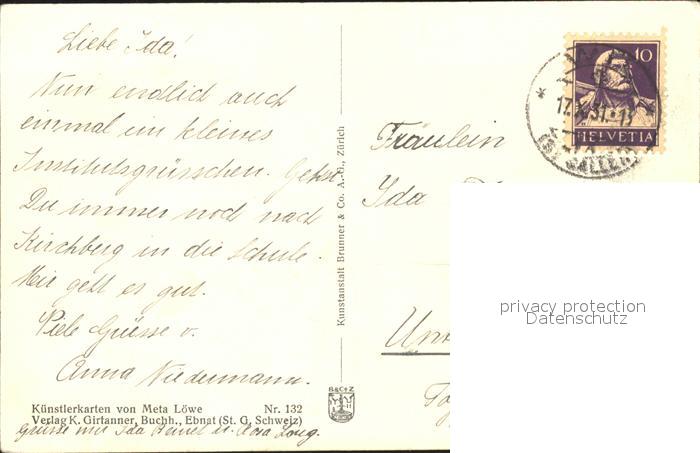 Liebe Ida!
Nun endlich auch
einmal ein kleines
Institutsgrüsschen. Gehst
Du immer noch nach
Kirchberg in die Schule.
Mir geht es gut.
Viele Grüsse v.
Anna Niedermann.
Künstlerkarten von Meta Löwe Nr. 132
Verlag K. Girtanner, Buchh., Ebnat (St. G. Schweiz)
Grüsse mir Ida u. Rosa
Kunstanstalt Brunner & Co. A.-G., Zürich
B&C⁰Z
10
HELVETIA
17.X.31.-1
(ST. GALLEN)
Fräulein
Ida
privacy protection
Datenschutz